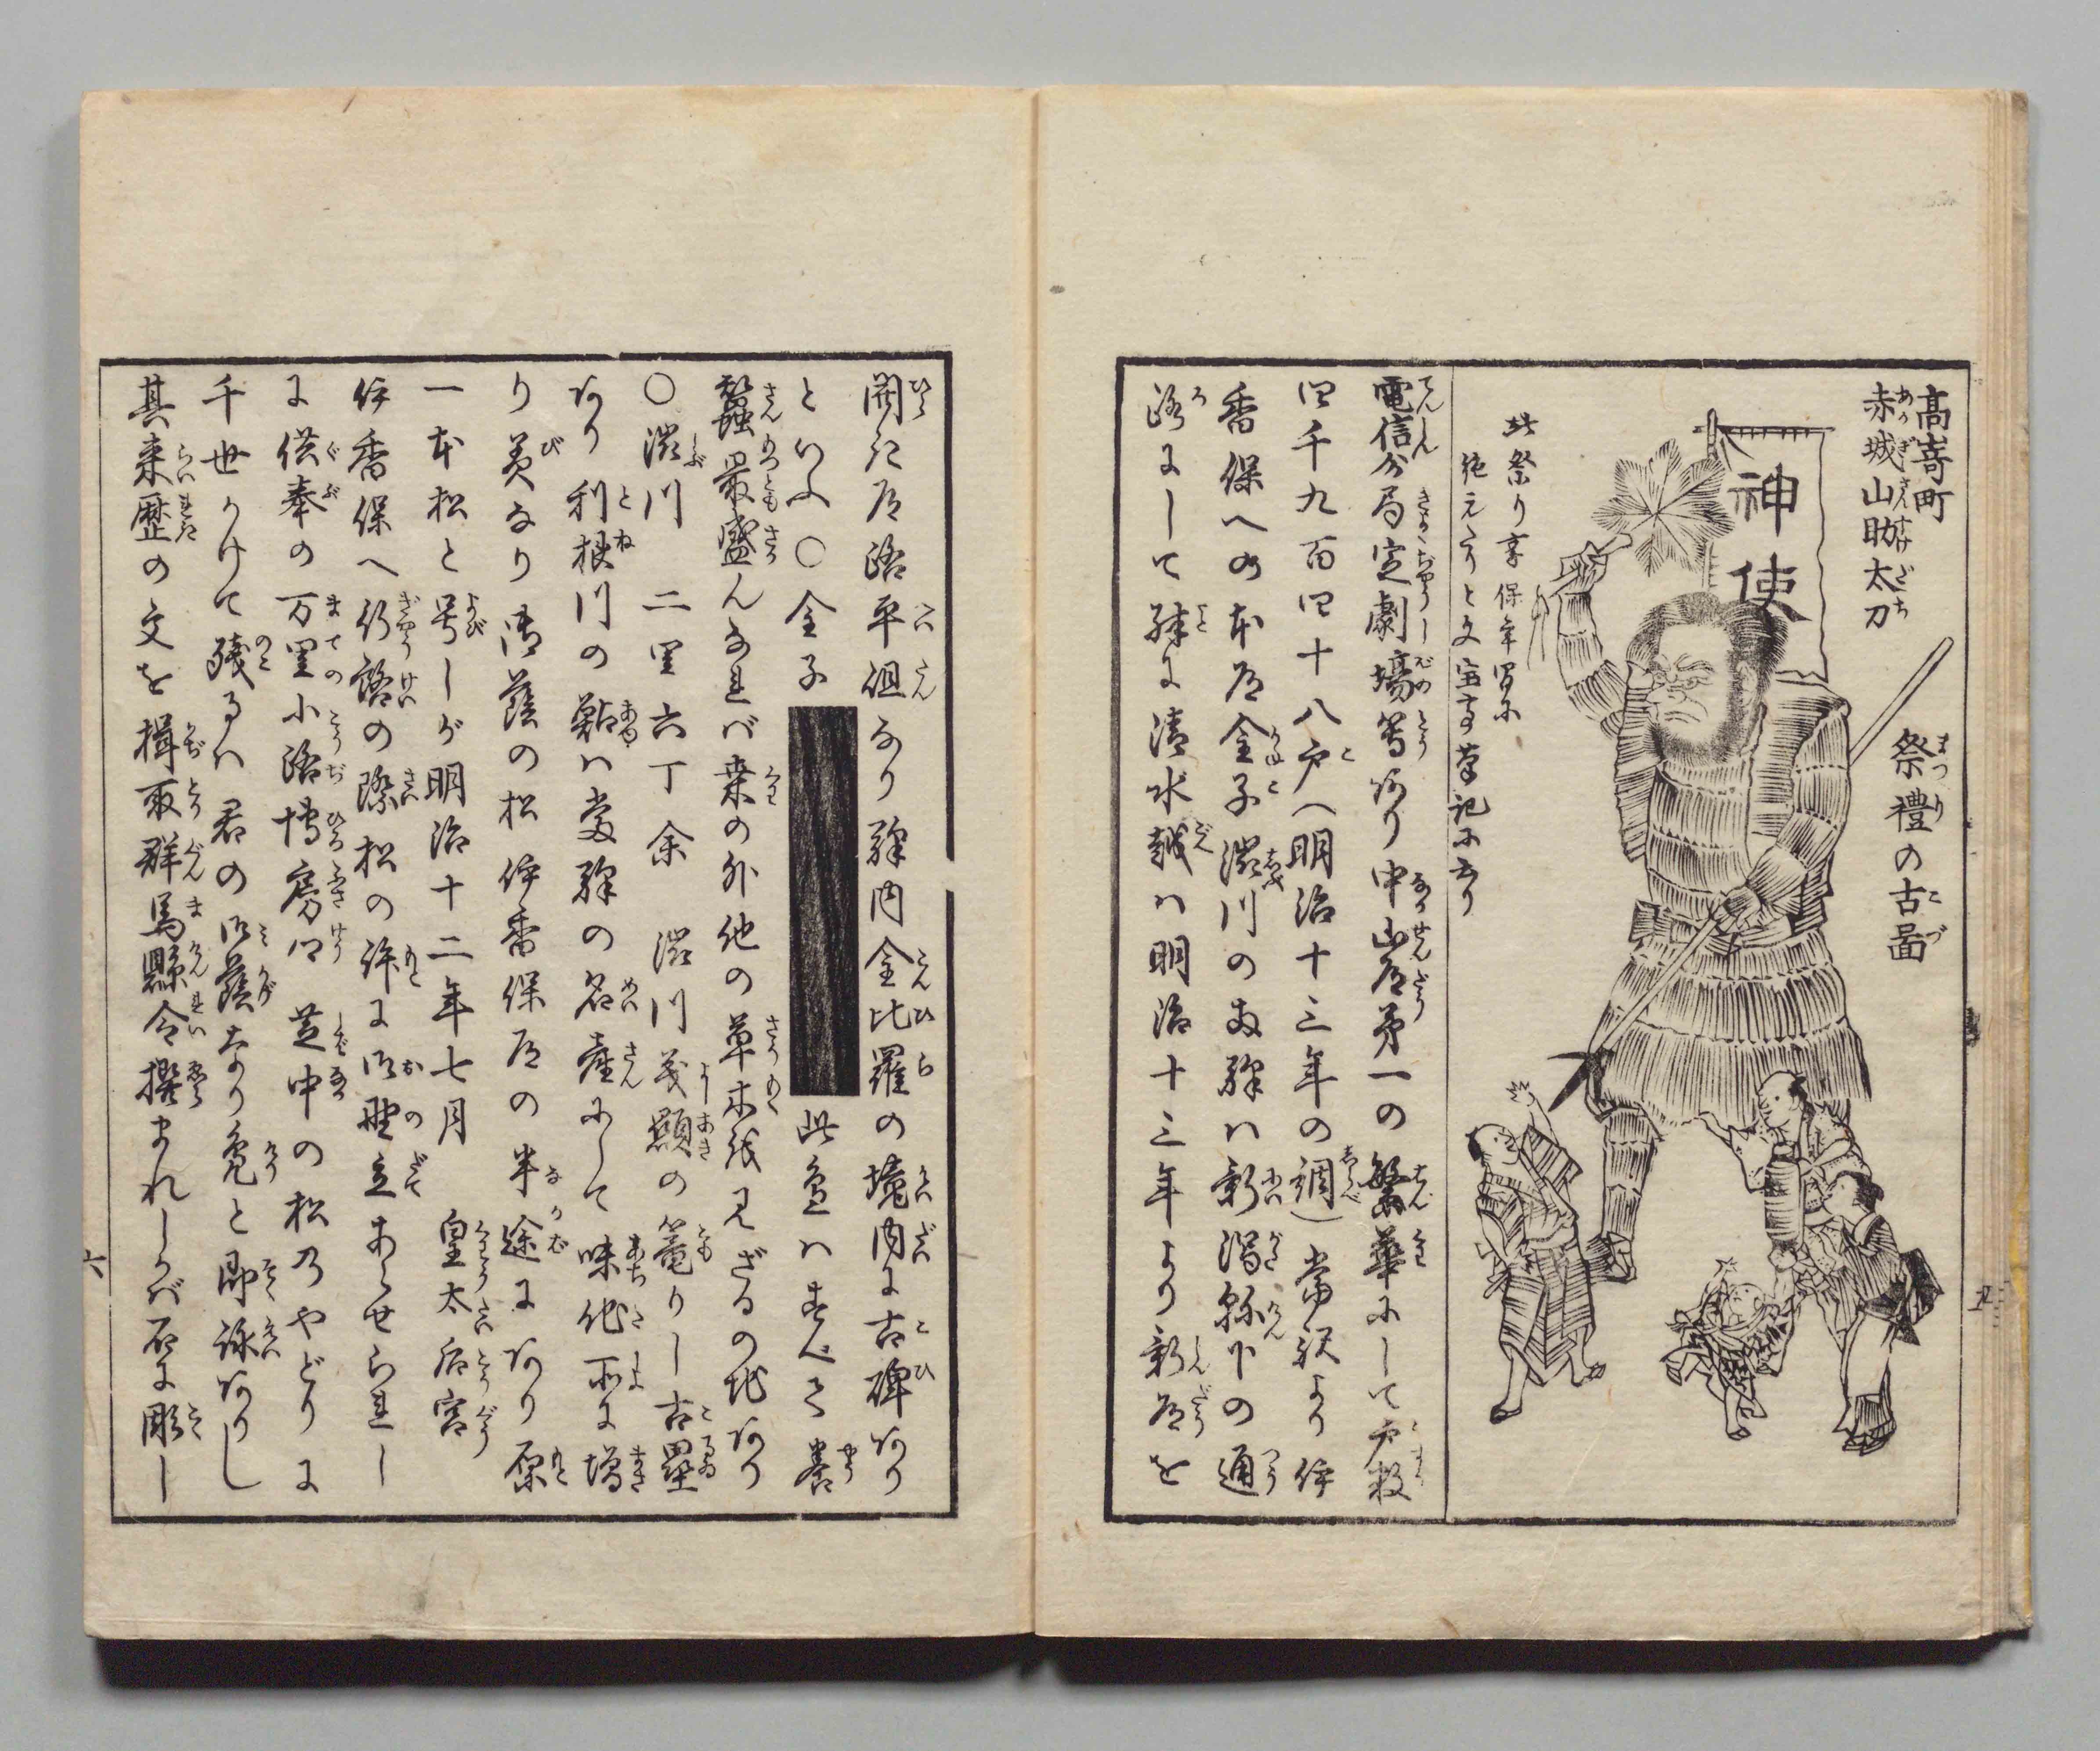 高嵜町
赤城山助太刀
祭禮の古啚
神使
此祭り享保年間に
絶えたりと文宝亭筆記に云り
電信分局定劇場等あり中山道第一の繁華にして戸数
四千九百四十八戸へ明治十三年の調）當驛より伊
香保への本道金子渋川の両驛ハ新潟縣下の通
路にして殊に清水越ハ明治十三年より新道を
開き道路平坦なり驛内金比羅の境内に古碑あり
といふ〇金子
此邊ハすべて養
蠶最盛んなれバ桒の外他の草木を見ざるの地あり
〇澁川 二里六丁余 澁川義顯の篭りし古壘
あり利根川の鮎ハ當驛の名産にして味他所に増
り美なり御蔭の松伊香保道の半途にあり原
一本松と号しが明治十二年七月 皇太后宮
伊香保へ行啓の際松の許に御野立あらせられし
に供奉の万里小路博房卿 芝中の松乃やどりに
千世かけて残るハ君の御蔭なり鳧と即詠ありし
其来歴の文を揖取群馬縣令撰まれしかバ石に彫し
六